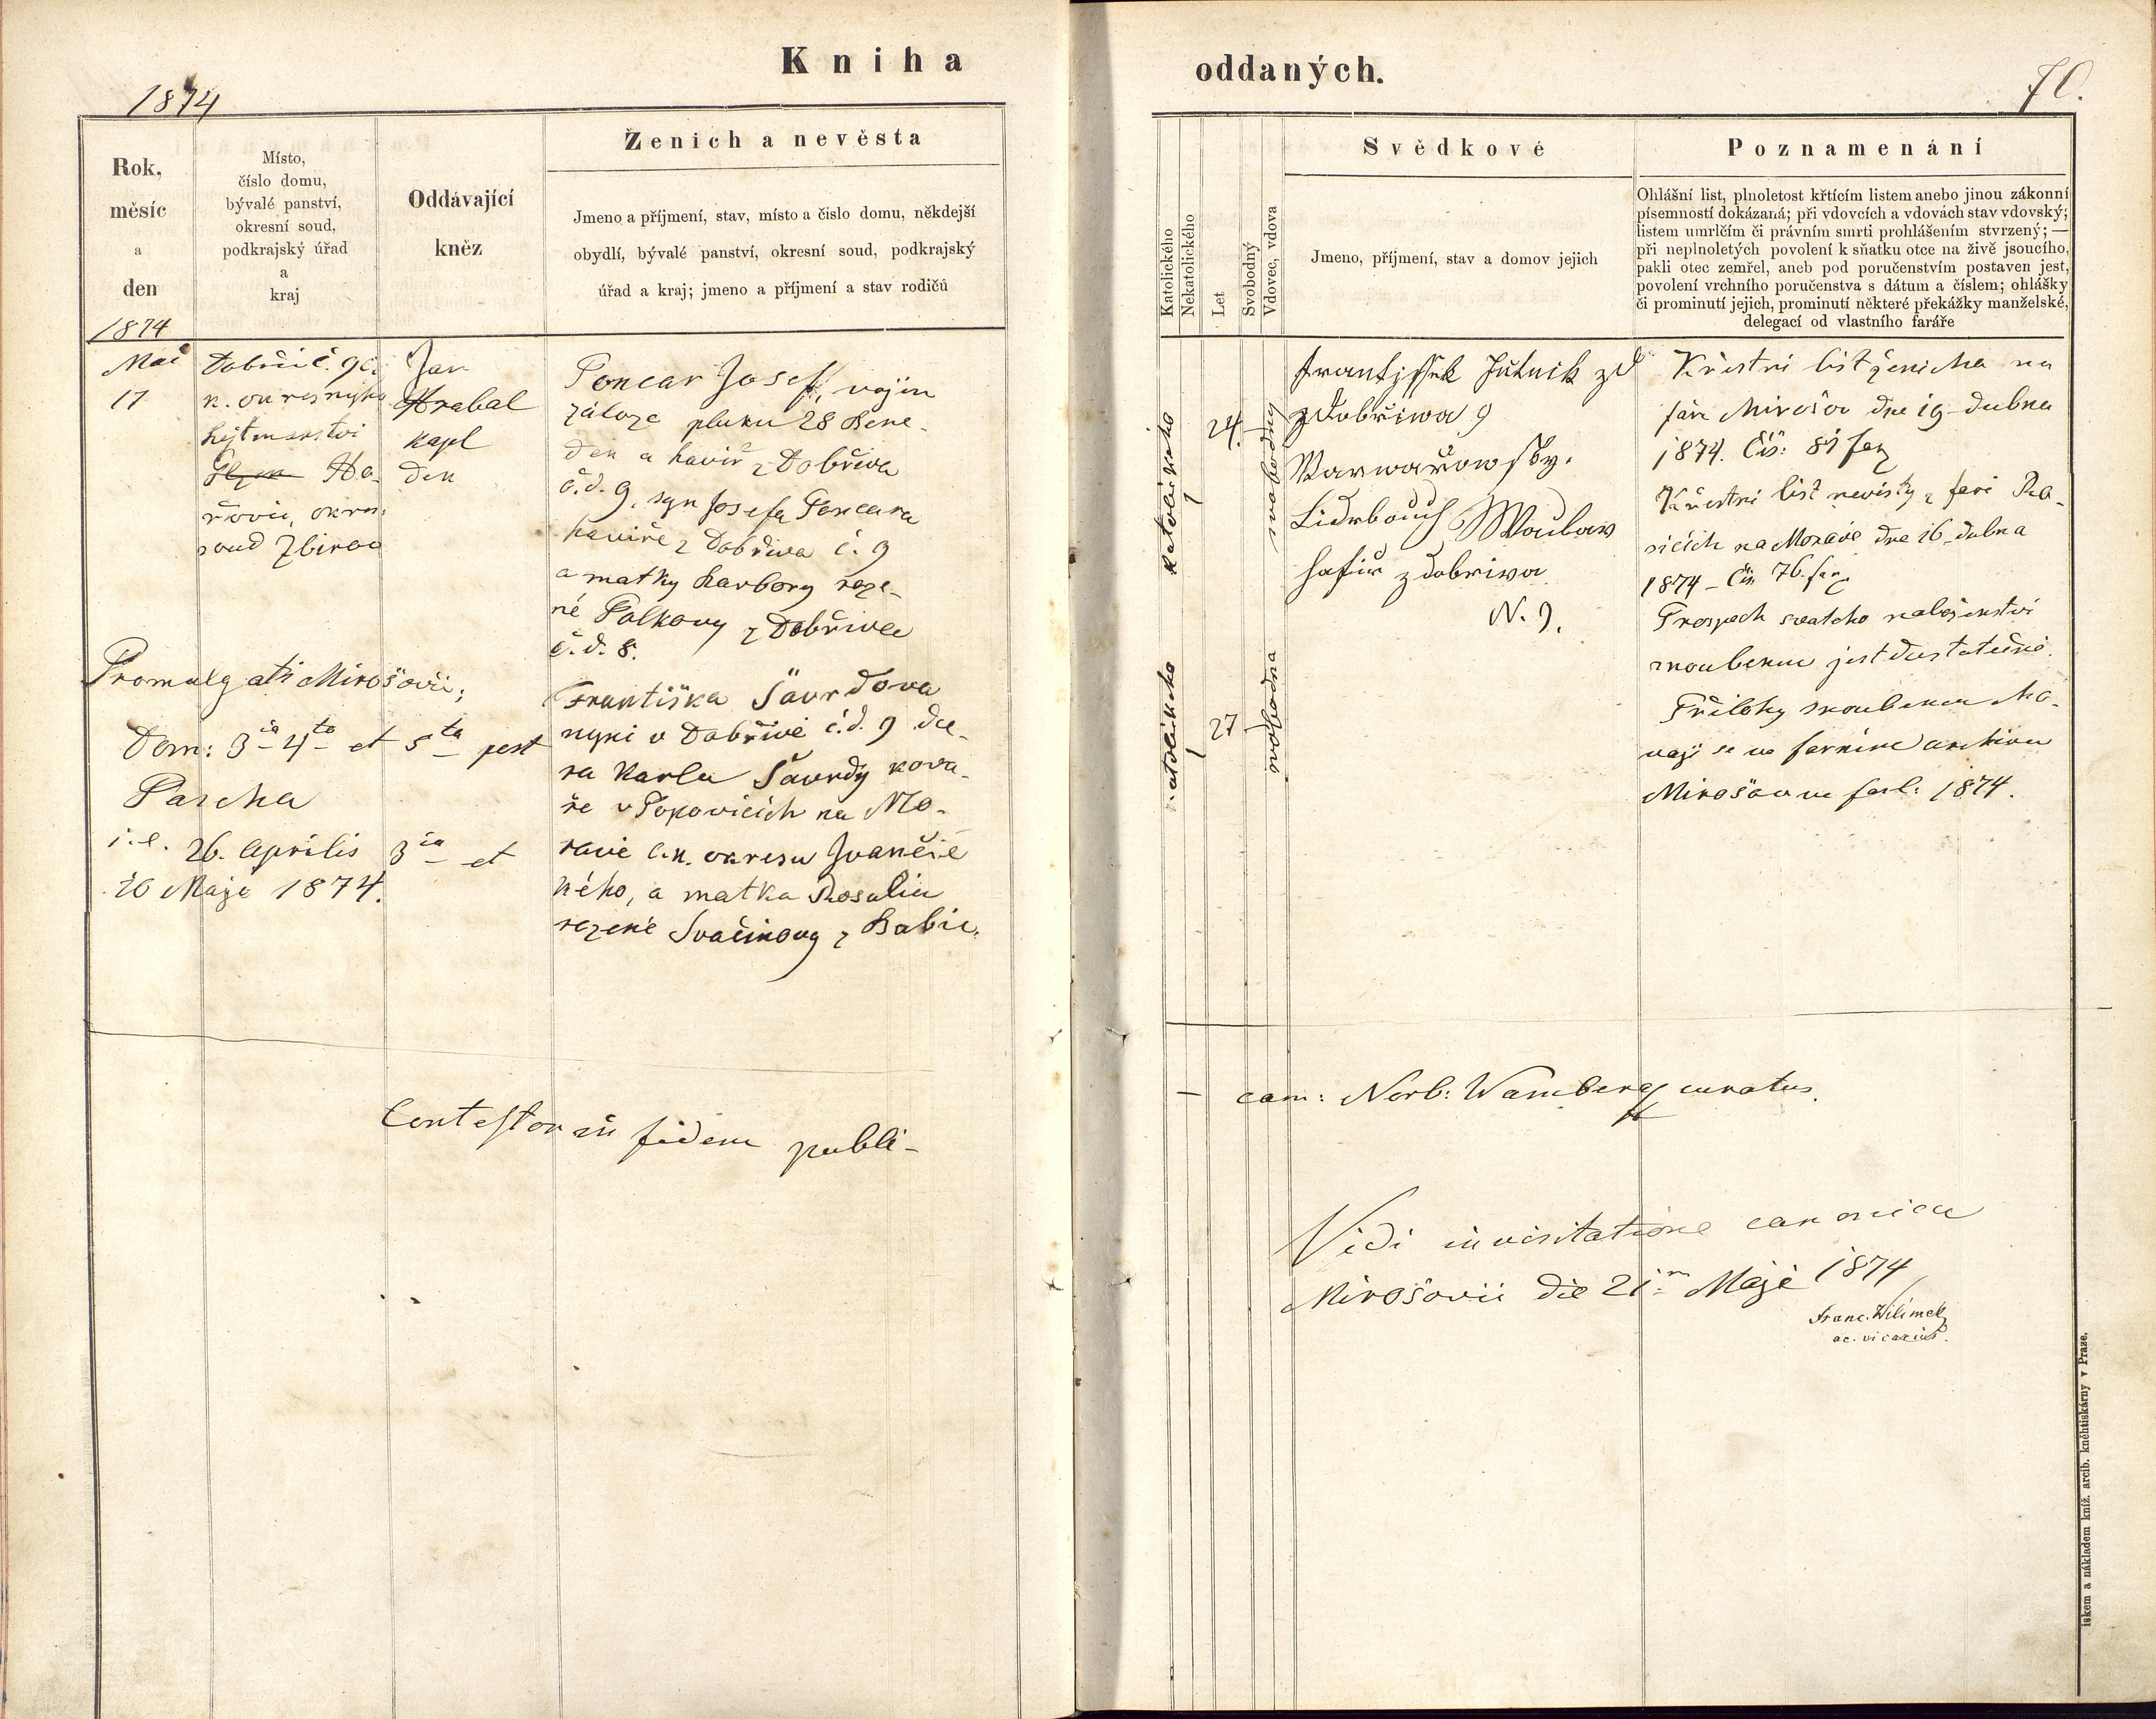 Kniha
oddaných.
1874
70.
Rok,
měsíc
a
den
1874
Místo,
číslo domu,
bývalé panství,
okresní soud,
podkrajský úřad
a
kraj
Oddávající
kněz
Ženich a nevěsta
Jmeno a příjmení, stav, místo a čislo domu, někdejší
obydlí, bývalé panství, okresní soud, podkrajský
úřad a kraj; jmeno a příjmení a stav rodičů
Katolického
Nekatolického
Let
Svobodný
Vdovec, vdova
Svědkové
Jmeno, příjmení, stav a domov jejich
Poznamenání
Ohlášní list, plnoletost křtícím listem anebo jinou zákonní
písemností dokázaná; při vdovcích a vdovách stav vdovský;
listem umrlčím či právním smrti prohlášením stvrzený; —
při neplnoletých povolení k sňatku otce na živě jsoucího,
pakli otec zemřel, aneb pod poručenstvím postaven jest,
povolení vrchního poručenstva s dátum a číslem; ohlášky
či prominutí jejich, prominutí některé překážky manželské,
delegací od vlastního faráře
Mai
17
k. okresnyho
hejtmanství
Ho-
řovic, okres.
soud Zbiroh
Jan
Hrabal
kapl
den
Poncar Josef, vojín
záloze pluku 28 Bene-
dek a havíř z Dobřiva
č.d. 9, syn Josefa Poncara
havíře z Dobřiva č. 9
a matky Barbory roze-
né Polkovy z Dobřiva
č.d. 8.
Františka Šavrdova
nyní v Dobřivě č.d. 9 dce-
ra Karla Šavrdy kova-
ře v Popovicích na Mo-
ravě c.k. okresu Ivančic
kého, a matka Rosalia
rozené Svačinovy z Babic.
Promulgati Mirošovii;
Dom: 3ia 4ta et 5ta post
Pascha
i.e. 26. Aprilis 3ia et
10 Maji 1874.
katolického
1
24
svobodný
katolického
1
27
svobodna
z Dobřiwa 9
hafíř z dobriwa
N. 9.
Křestní list ženicha na
faře Mirošov dne 19 dubna
1874. Čís: 81 far
Křestní list nevěsty z fary Ro-
sicích na Moravě dne 16 dubna
1874 – Čís. 76. far.
Prospěch svatého náboženství
snoubenců jest dostatečné.
Přílohy snoubenců cho-
vají se ve farním archivu
Mirošovu fasc: 1874.
Contestor in fidem publi-
cam: Norb: Wamberg curatus.
Vidi in visitatione canonica
Mirošovii die 21m Maji 1874
Franc. Wilimek
ac. vicarius.
iskem a nákladem kníž. arcib. kněhtiskárny v Praze.